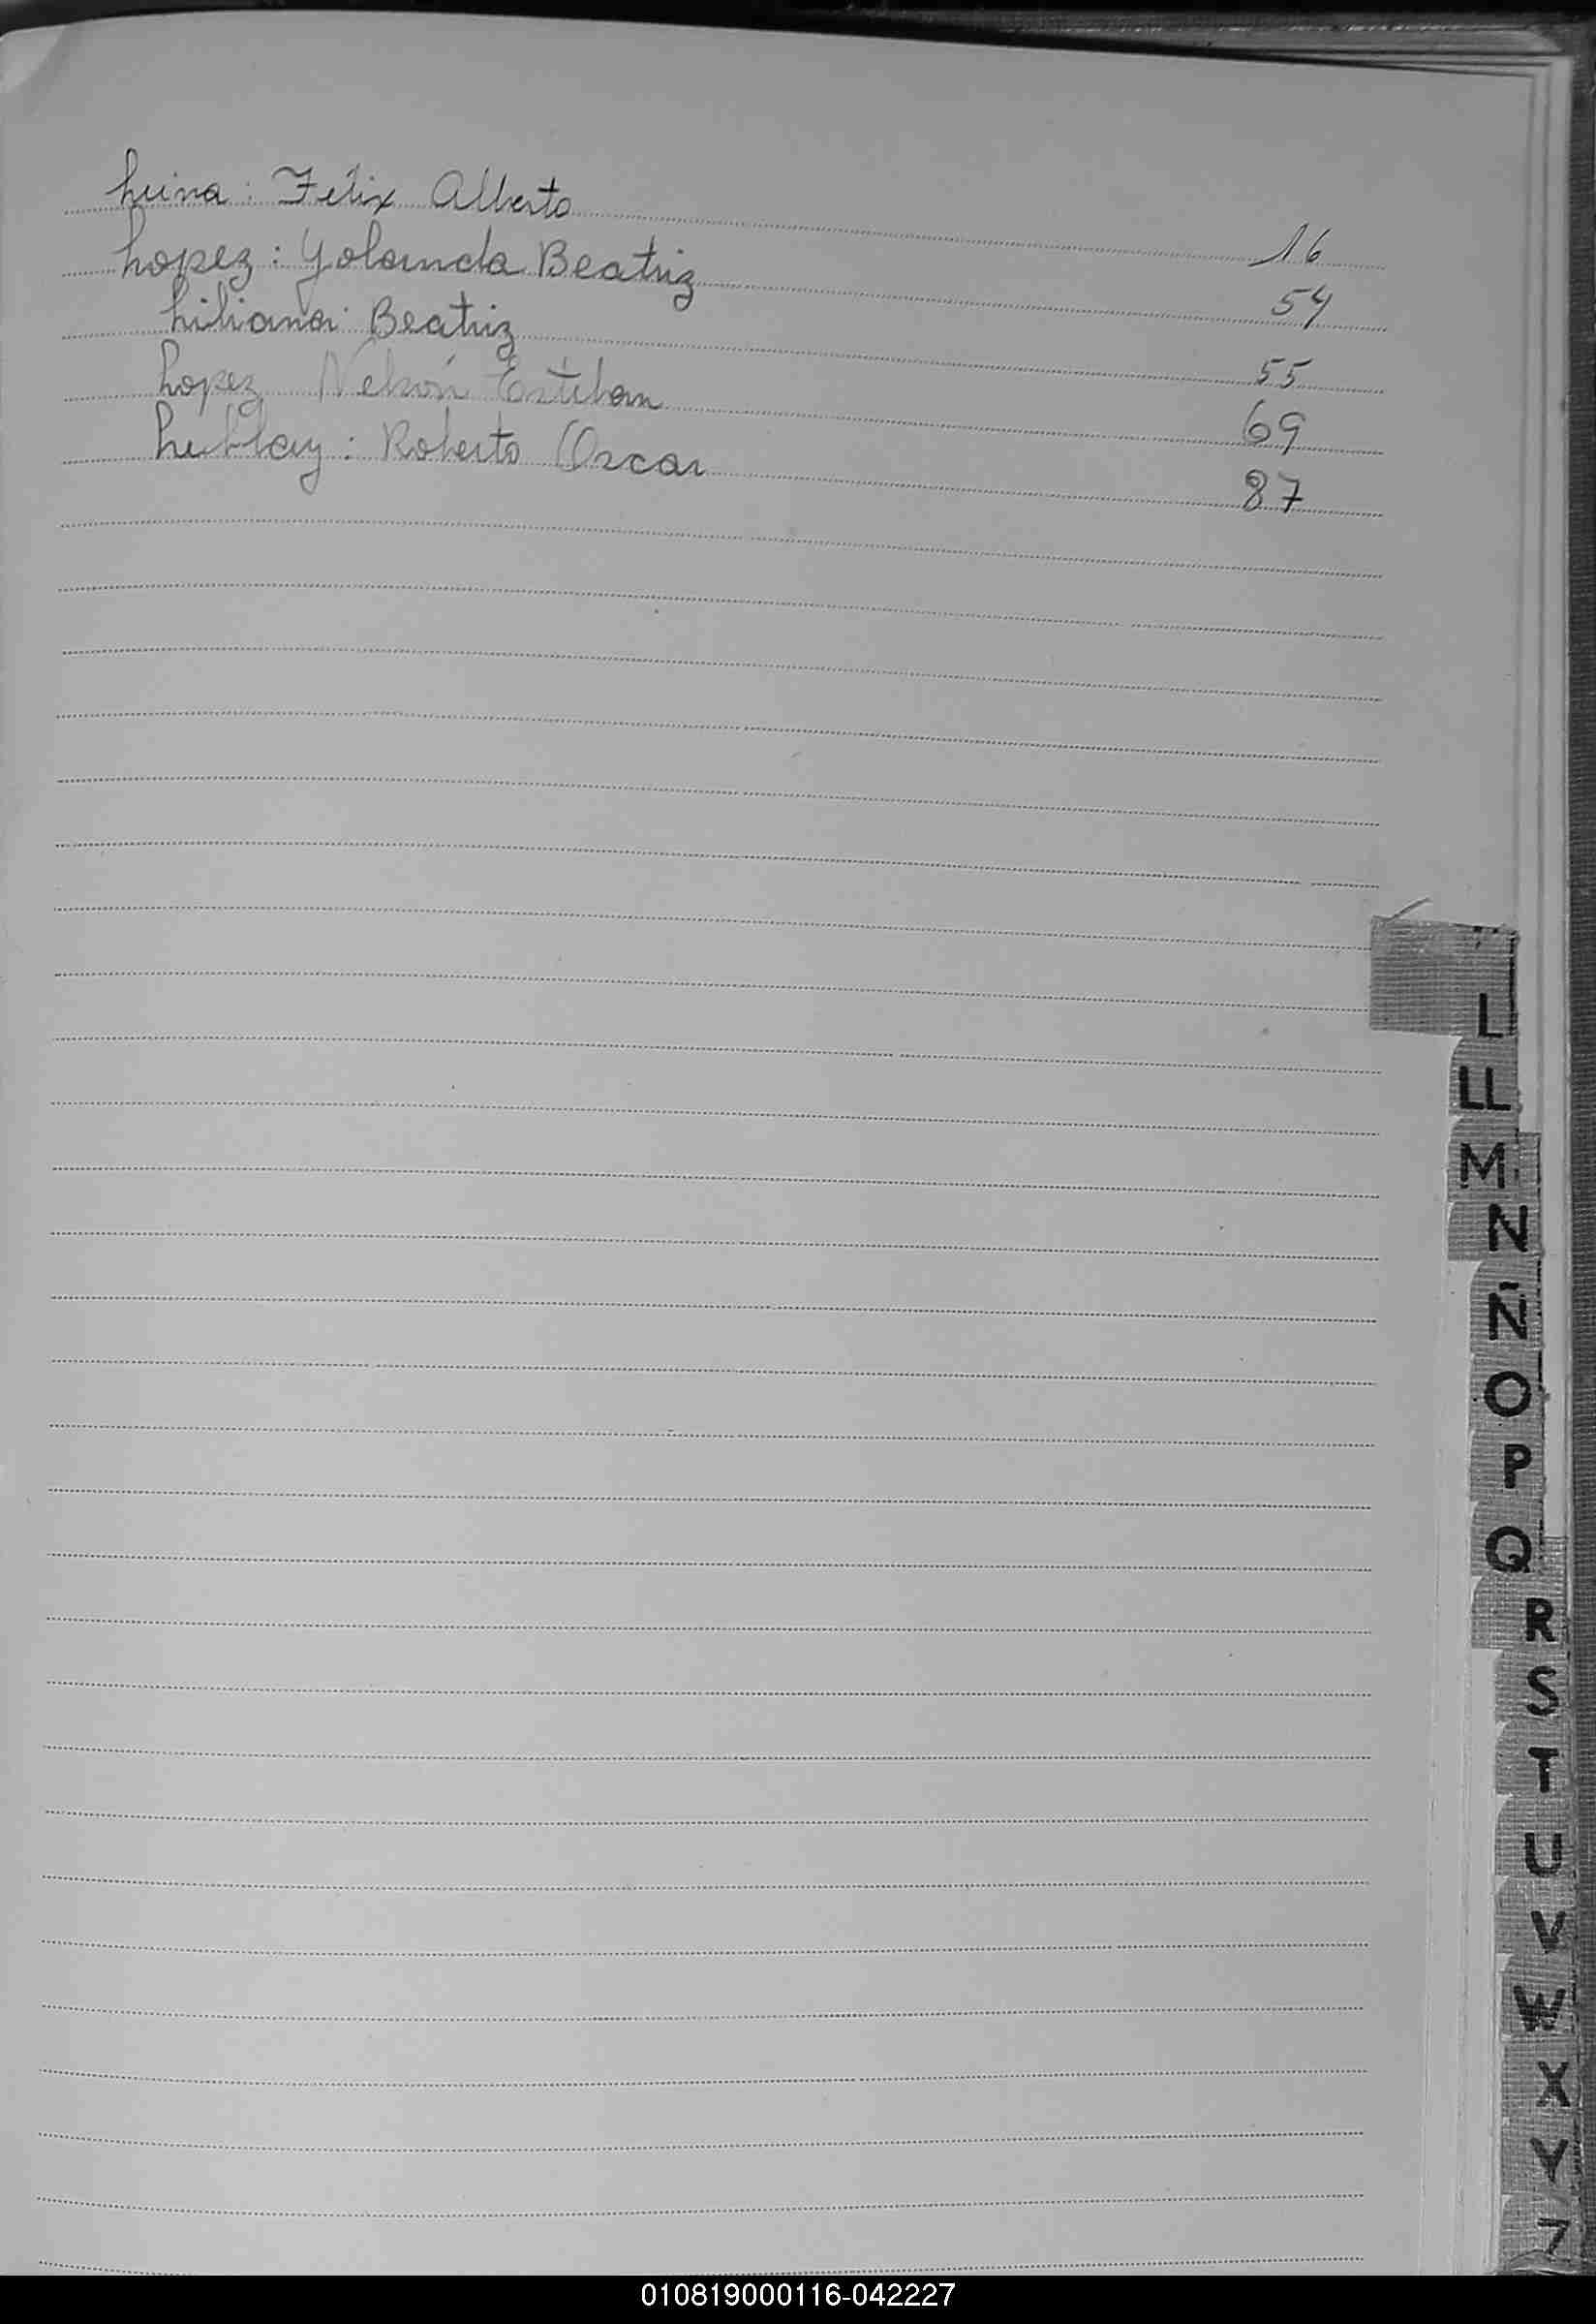 Luna: Felix Alberto 16
Lopez: Yolanda Beatriz 54
Liliana: Beatriz 55
Lopez Nelson Esteban 69
Roberto Oscar 87
L
LL
M
N
Ñ
O
P
Q
R
S
T
U
V
W
X
Y
Z
010819000116-042227